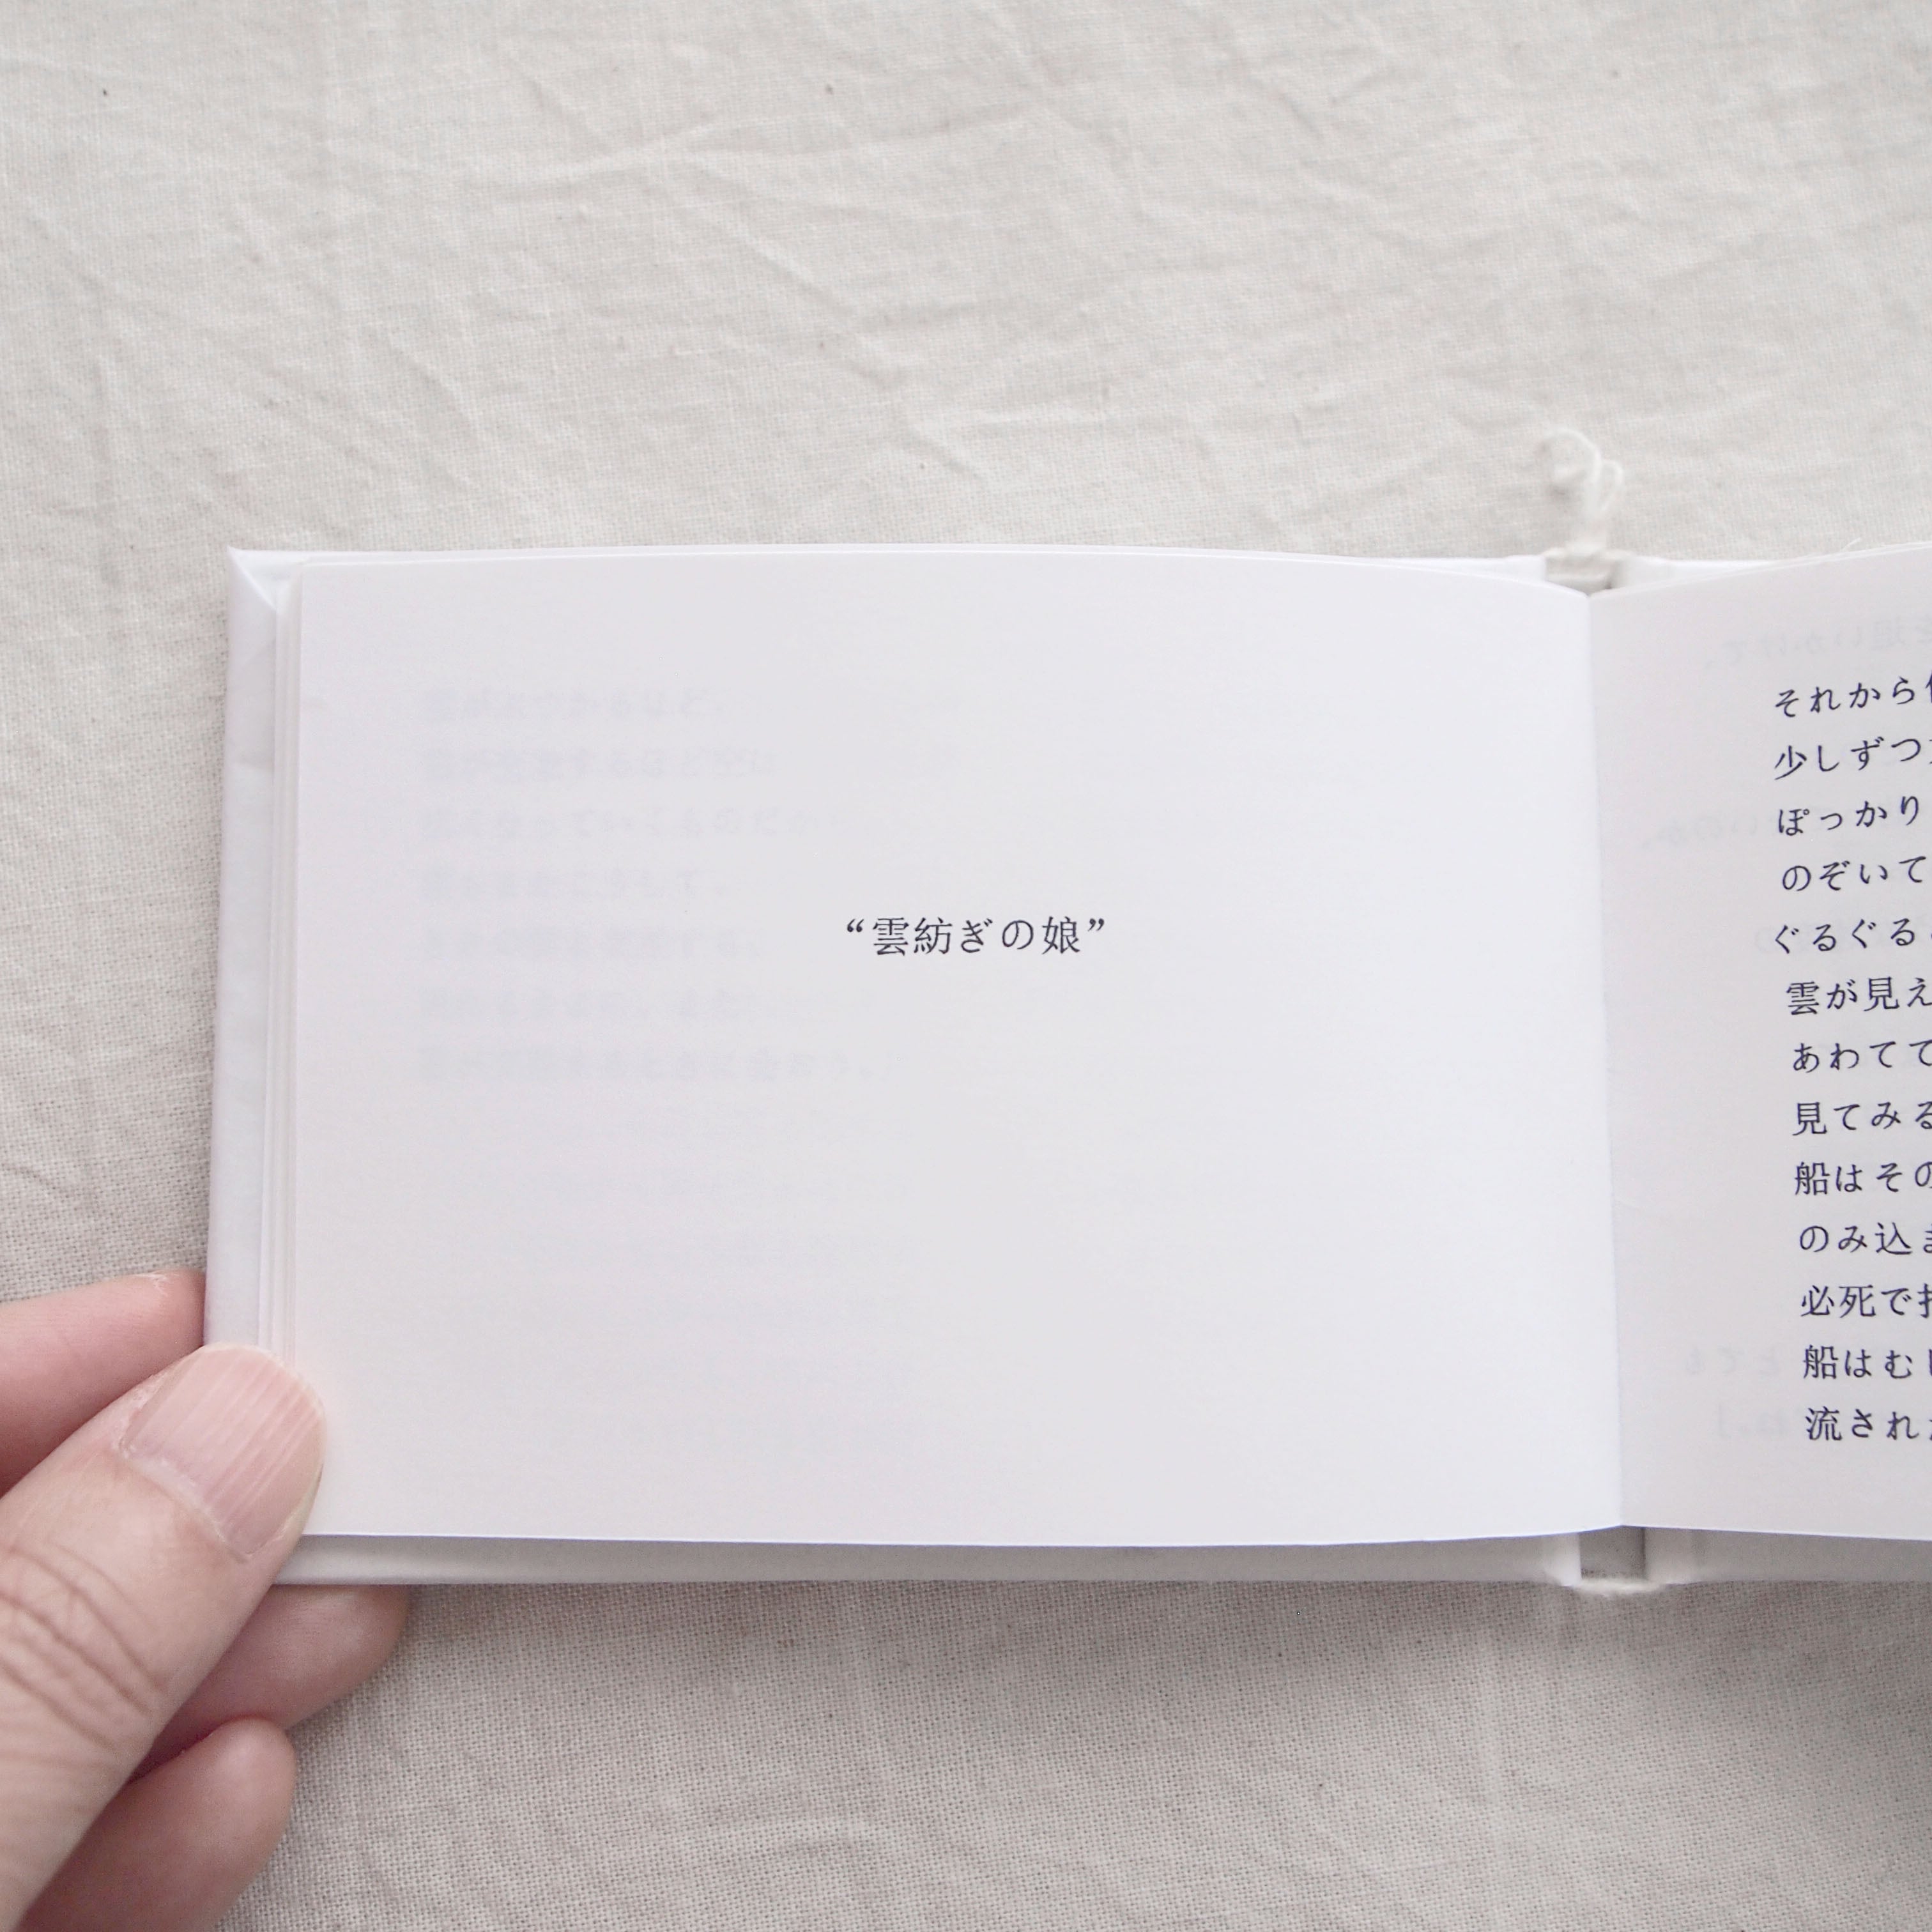 “雲紡ぎの娘”
それから
少しずつ
ぽっかり
のぞいて
ぐるぐる
雲が見え
あわてて
見てみる
船はその
のみ込ま
必死で
船はむ
流され